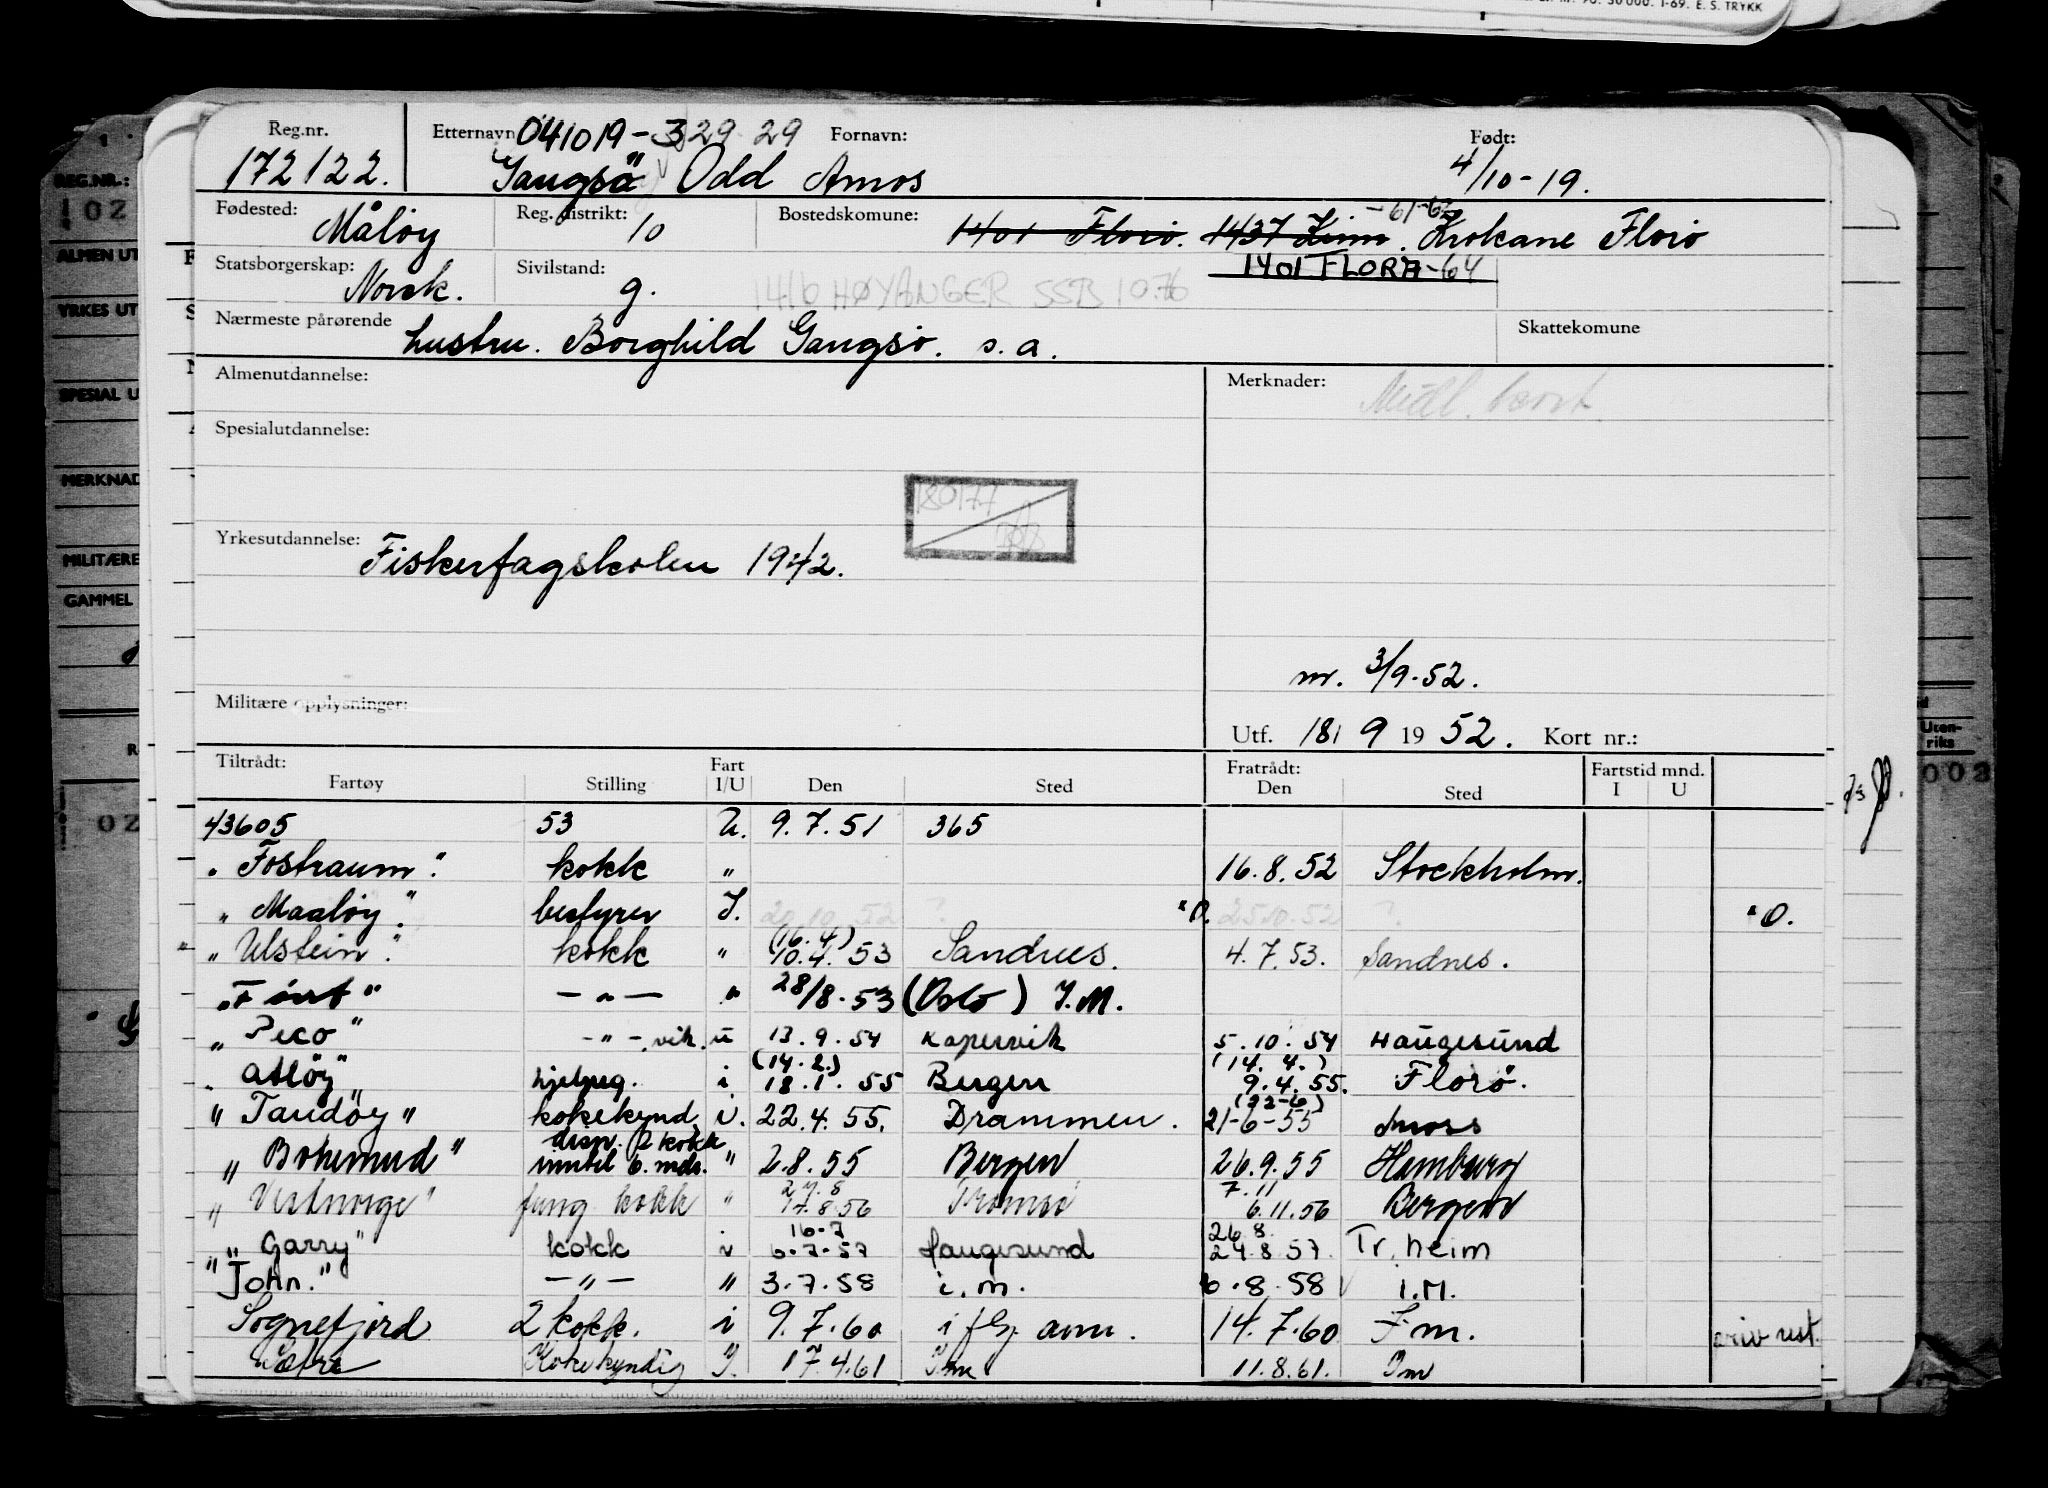 Nr. 90. 30 000. 1-69. E. S. TRYKK
Reg.nr. Etternavn 041019-32929 Fornavn: Født:
172122. Gangsö Odd Amos 4/10-19.
Fødested: Måløy Reg. distrikt: 10 Bostedskomune: 1401 Florø. 1437 Kinn. -61-62 Krokane Florø
1401 FLORA-64
Statsborgerskap: Norsk. Sivilstand: g. 1416 HØYANGER SSB 10.76
Nærmeste pårørende hustru. Borghild Gangsø. s.a. Skattekomune
Almenutdannelse: Merknader:
Spesialutdannelse:
180177
Yrkesutdannelse: Fiskerfagskolen 1942.
m. 3/9-52.
Militære opplysninger:
Utf. 18/9 1952. Kort nr.:
Tiltrådt: Fart Fratrådt: Fartstid mnd.
Fartøy Stilling I/U Den Sted Den Sted I U
43605 53 U. 9.7.51 365
"Fostraum". kokk " 16.8.52 Stockholm.
"Maaløy". bestyrer I. 20.10.52 ? "O. 25.10.52 ? "O.
"Ulstein". kokk " (16.4) 10.4.53 Sandnes. 4.7.53. Sandnes.
"Font" —"— " 28/8-53 (Oslo) I.M.
"Peco" -"- vik. u 13.9.54 Kopervik 5.10.54 Haugesund
"Atløy" hjelpeg. i (14.2.) 18.1.55 Bergen (14.4.) 9.4.55. Florö.
"Tandöy" kokekynd. i. 22.4.55. Drammen. (22-6) 21-6-55 Moss
"Bohemund" disp. 2 kokk inntil 6. mdr. " 2.8.55 Bergen 26.9.55 Hamburg
"Vestnorge" fung kokk " 27.8 17.8.56 Tromsø 7.11 6.11.56 Bergen
"Garry" kokk i 16-7 6-7-57 Haugesund 26.8. 24.8.57. Tr.heim
"John." —"— " 3.7.58 i.m. 6.8.58 I.M.
Sognefjord 2 kokk. i 9.7.60 i flg. avm. 14.7.60 I m.
Sæfra Kokekyndig I. 17.4.61 Im 11.8.61. Im
REG.NR.:
102
ALMEN UT
YRKES UT
SPESIAL U
MERKNAD
MILITÆRE
GAMMEL
02
Uten-
riks
002